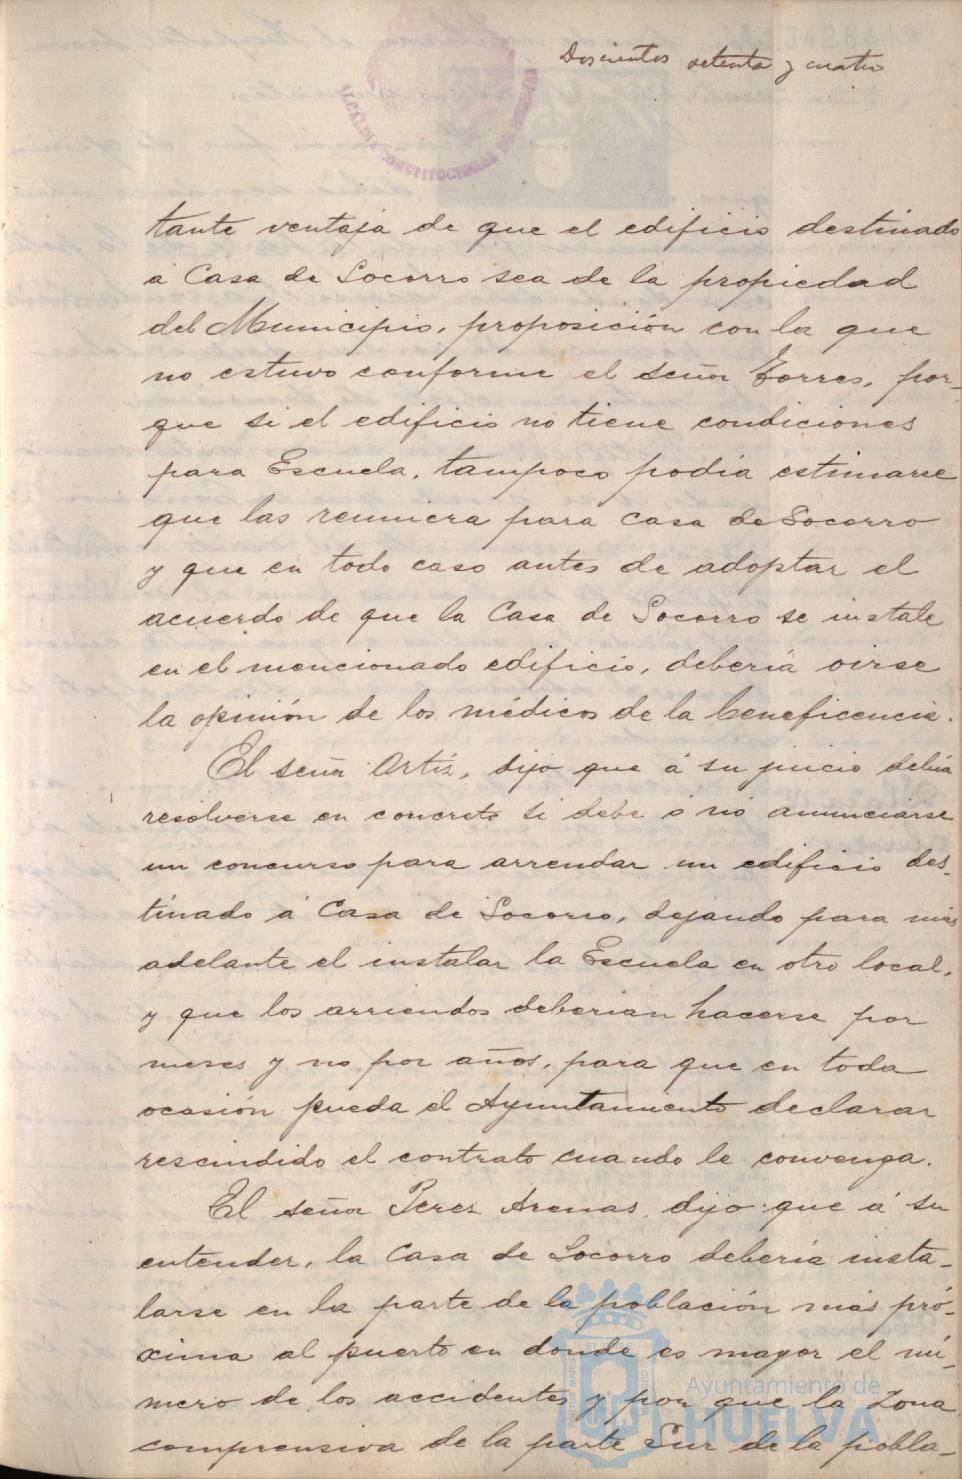 Doscientos setenta y cuatro
ALCALDIA CONSTITUCIONAL DE
tante ventaja de que el edificio destinado
á Casa de Socorro sea de la propiedad
del Municipio, proposición con la que
no estuvo conforme el señor Torres, por-
que si el edificio no tiene condiciones
para Escuela, tampoco podía estimarse
que las reuniera para casa de Socorro
y que en todo caso antes de adoptar el
acuerdo de que la Casa de Socorro se instale
en el mencionado edificio, debería oirse
la opinión de los médicos de la beneficencia.
El señor Ortiz, dijo que á su juicio debía
resolverse en concreto si debe ó nó anunciarse
un concurso para arrendar un edificio des-
tinado á Casa de Socorro, dejando para más
adelante el instalar la Escuela en otro local,
y que los arriendos deberían hacerse por
meses y no por años, para que en toda
ocasión pueda el Ayuntamiento declarar
rescindido el contrato cuando le convenga.
El señor Perez Arenas, dijo: que á su
entender, la Casa de Socorro debería insta-
larse en la parte de la población más pró-
xima al puerto en donde es mayor el nú-
mero de los accidentes y por que la Zona
comprensiva de la parte Sur de la pobla-
Ayuntamiento de
HUELVA